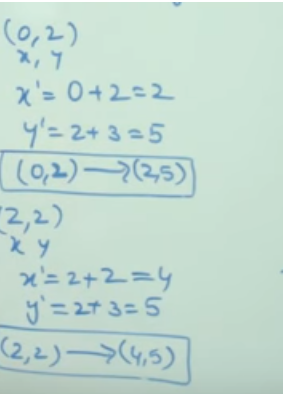 (0,2)
x, y
x' = 0+2=2
y' = 2+3=5
(0,2)→(2,5)
(2,2)
x y
x' = 2+2=4
y' = 2+3=5
(2,2)→(4,5)